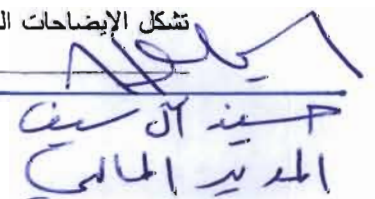 تشكل الإيضاحات ال
حسين آل سيف
المدير المالي